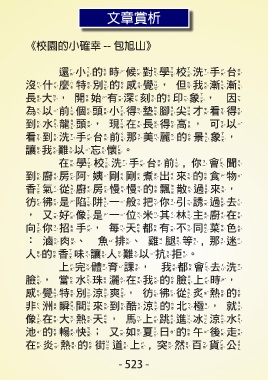 文章賞析
《校園的小確幸 -- 包旭山》
還小的時候對學校洗手台
沒什麼特別的感覺，但我漸漸
長大，開始有深刻的印象，因
為以前個頭小得墊腳尖才看得
到水龍頭，現在長得高，可以
看到洗手台前那美麗的景象，
讓我難以忘懷。
在學校洗手台前，你會聞
到廚房阿姨剛剛煮出來的食物
香氣從廚房慢慢的飄散過來，
彷彿是陷阱一般把你引誘過去
，又好像是一位米其林主廚在
向你招手，每天都有不同菜色
：滷肉、魚排、雞腿等，那迷
人的香味讓人難以抗拒。
上完體育課，我都會去洗
臉，當水珠灑在我的臉上時，
感覺特別涼爽，彷彿從炎熱的
非洲瞬間來到酷涼的北極，就
像在大熱天，馬上跳進冰涼水
池的暢快；又如夏日的午後走
在炎熱的街道上，突然百貨公
- 523 -